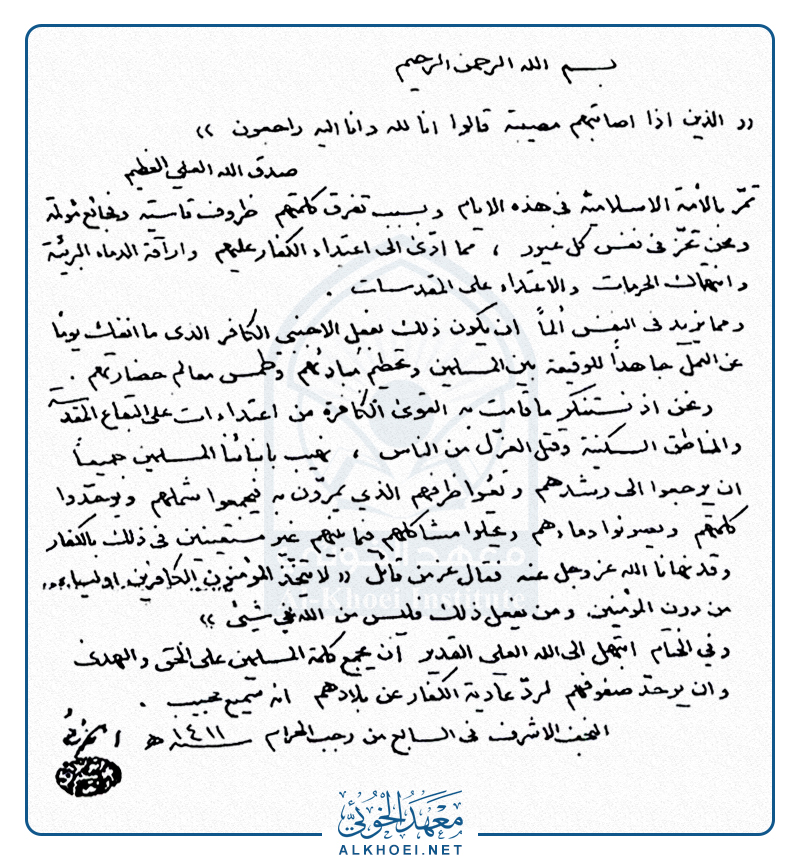 بسم الله الرحمن الرحيم
(( الذين اذا اصابتهم مصيبة قالوا انا لله وانا اليه راجعون ))
صدق الله العلي العظيم
تمرّ بالأمة الاسلامية في هذه الايام وبسبب تفرق كلمتهم ظروف قاسية وفجائع مؤلمة
ومحن تحزّ في نفس كل غيور ، مما ادّى الى اعتداء الكفار عليهم واراقة الدماء البريئة
وانتهاك الحرمات والاعتداء على المقدسات .
ومما يزيد في النفس ألماً ان يكون ذلك بفعل الاجنبي الكافر الذي ما انفك يوماً
عن العمل جاهداً للوقيعة بين المسلمين وتحطيم مبادئهم وطمس معالم حضارتهم .
ونحن اذ نستنكر ما قامت به القوى الكافرة من اعتداءات على البقاع المقدسة
والمناطق السكنية وقتل العزّل من الناس ، نهيب بابنائنا المسلمين جميعاً
ان يرجعوا الى رشدهم و الذي يمرّون به فيجمعوا شملهم ويوحّدوا
كلمتهم ويصونوا دماءهم ويحلوا مشاكلهم فيما بينهم غير مستعينين في ذلك بالكفار
وقد نهانا الله عز وجل عنه فقال عز من قائل (( لا يتخذ المؤمنون الكافرين اولياء
من دون المؤمنين ومن يفعل ذلك فليس من الله في شيئ ))
وفي الختام ابتهل الى الله العلي القدير أن يجمع كلمة المسلمين على الحق والهدى
وان يوحّد صفوفهم لردّ عادية الكفار عن بلادهم انه سميع مجيب .
النجف الاشرف في السابع من رجب الحرام سنة ١٤١١ هـ الخوئي
معهد الخوئي
Al-Khoei Institute
معهد الخوئي
ALKHOEI.NET